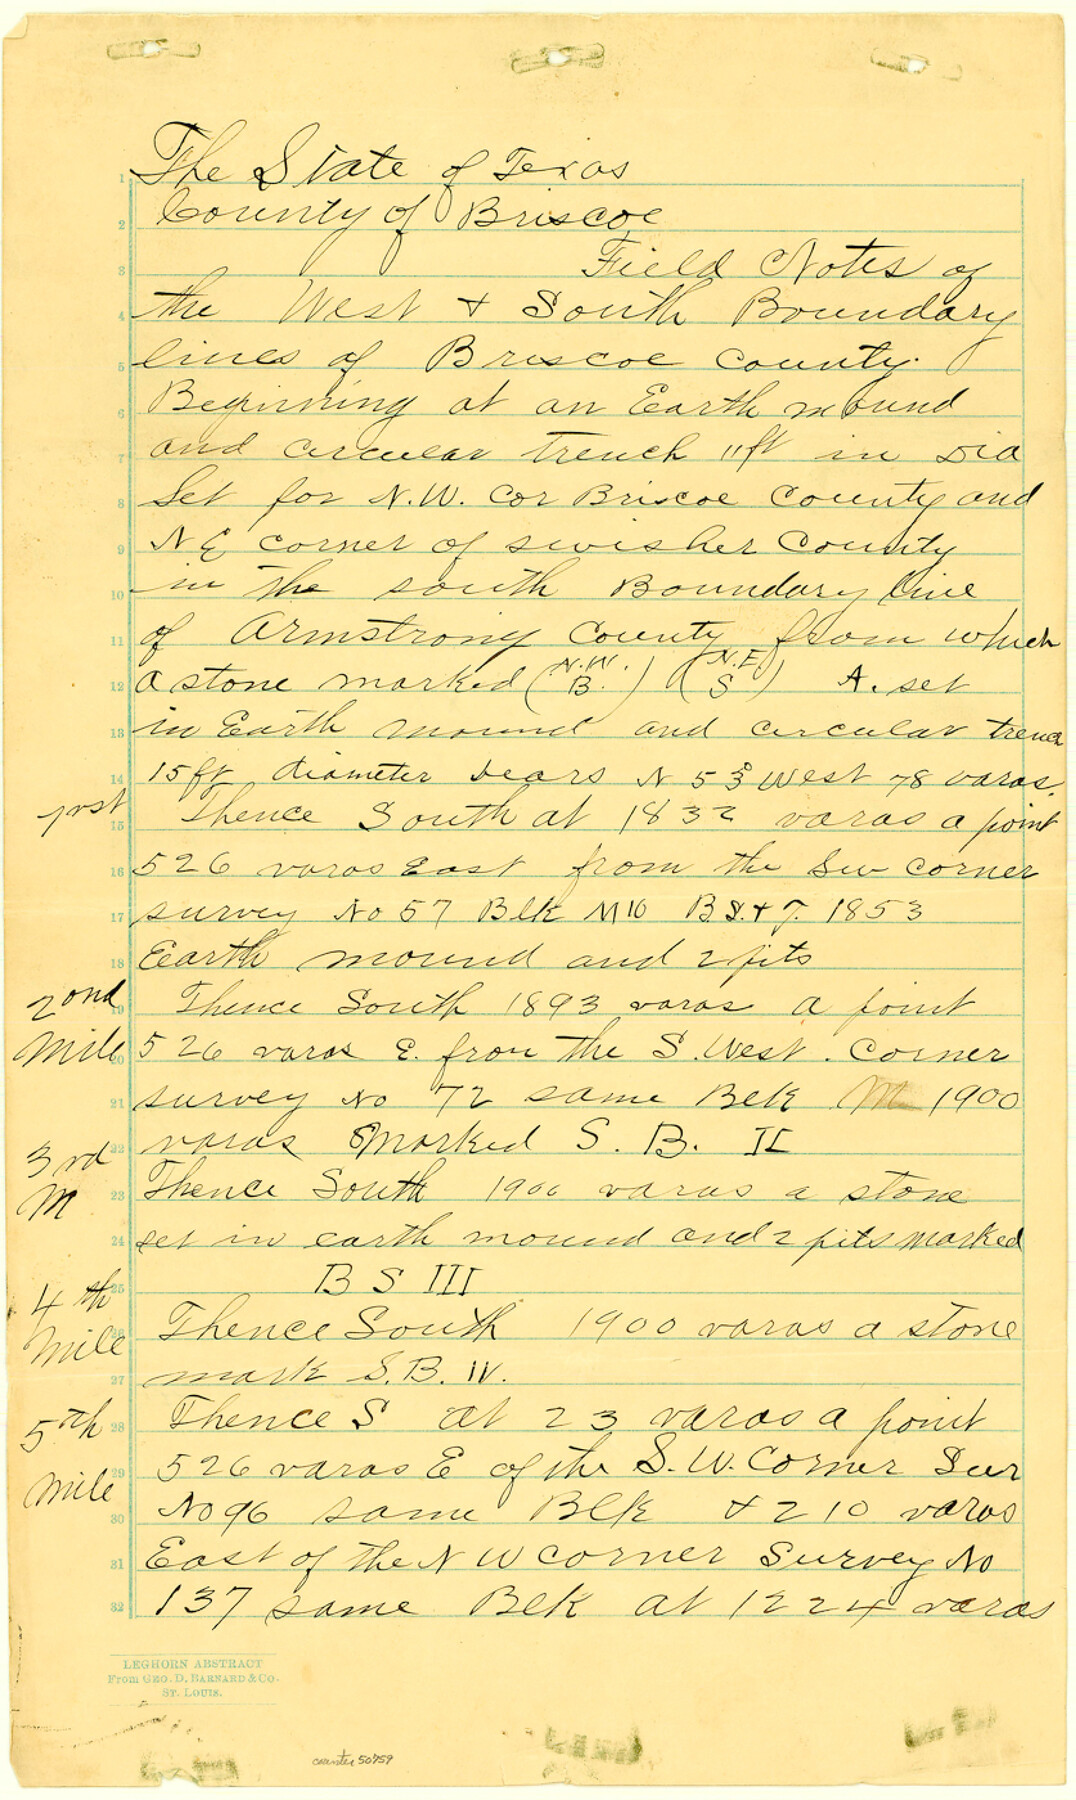 The State of Texas
County of Briscoe
Field Notes of
the West & South Boundary
lines of Briscoe County.
Beginning at an Earth mound
and circular trench 11ft in Dia
Set for N.W. Cor Briscoe County and
N E corner of swisher County
in the south Boundary line
of Armstrong County from which
a stone marked (N.W. B.) (N.E. S) A. set
in Earth mound and circular trench
15ft diameter bears N 5 3/8 West 78 varas.
1rst
Thence South at 1832 varas a point
526 varas East from the Sw corner
survey No 57 Blk M10 B S. & F. 1853
Earth mound and 2 pits
2ond
Mile
Thence South 1893 varas a point
526 varas E. from the S. West. Corner
survey No 72 same Belk M 1900
varas Marked S. B. II
3rd
M
Thence South 1900 varas a stone
set in earth mound and 2 pits marked
B S III
4th
Mile
Thence South 1900 varas a stone
mark S. B. IV.
5th
Mile
Thence S at 23 varas a point
526 varas E of the S.W. Corner Sur
No 96 same Blk & 210 varas
East of the N W corner Survey No
137 same Belk at 1224 varas
LEGHORN ABSTRACT
From GEO. D. BARNARD & Co.
ST. LOUIS.
counter 50759
1
2
3
4
5
6
7
8
9
10
11
12
13
14
15
16
17
18
19
20
21
22
23
24
25
26
27
28
29
30
31
32